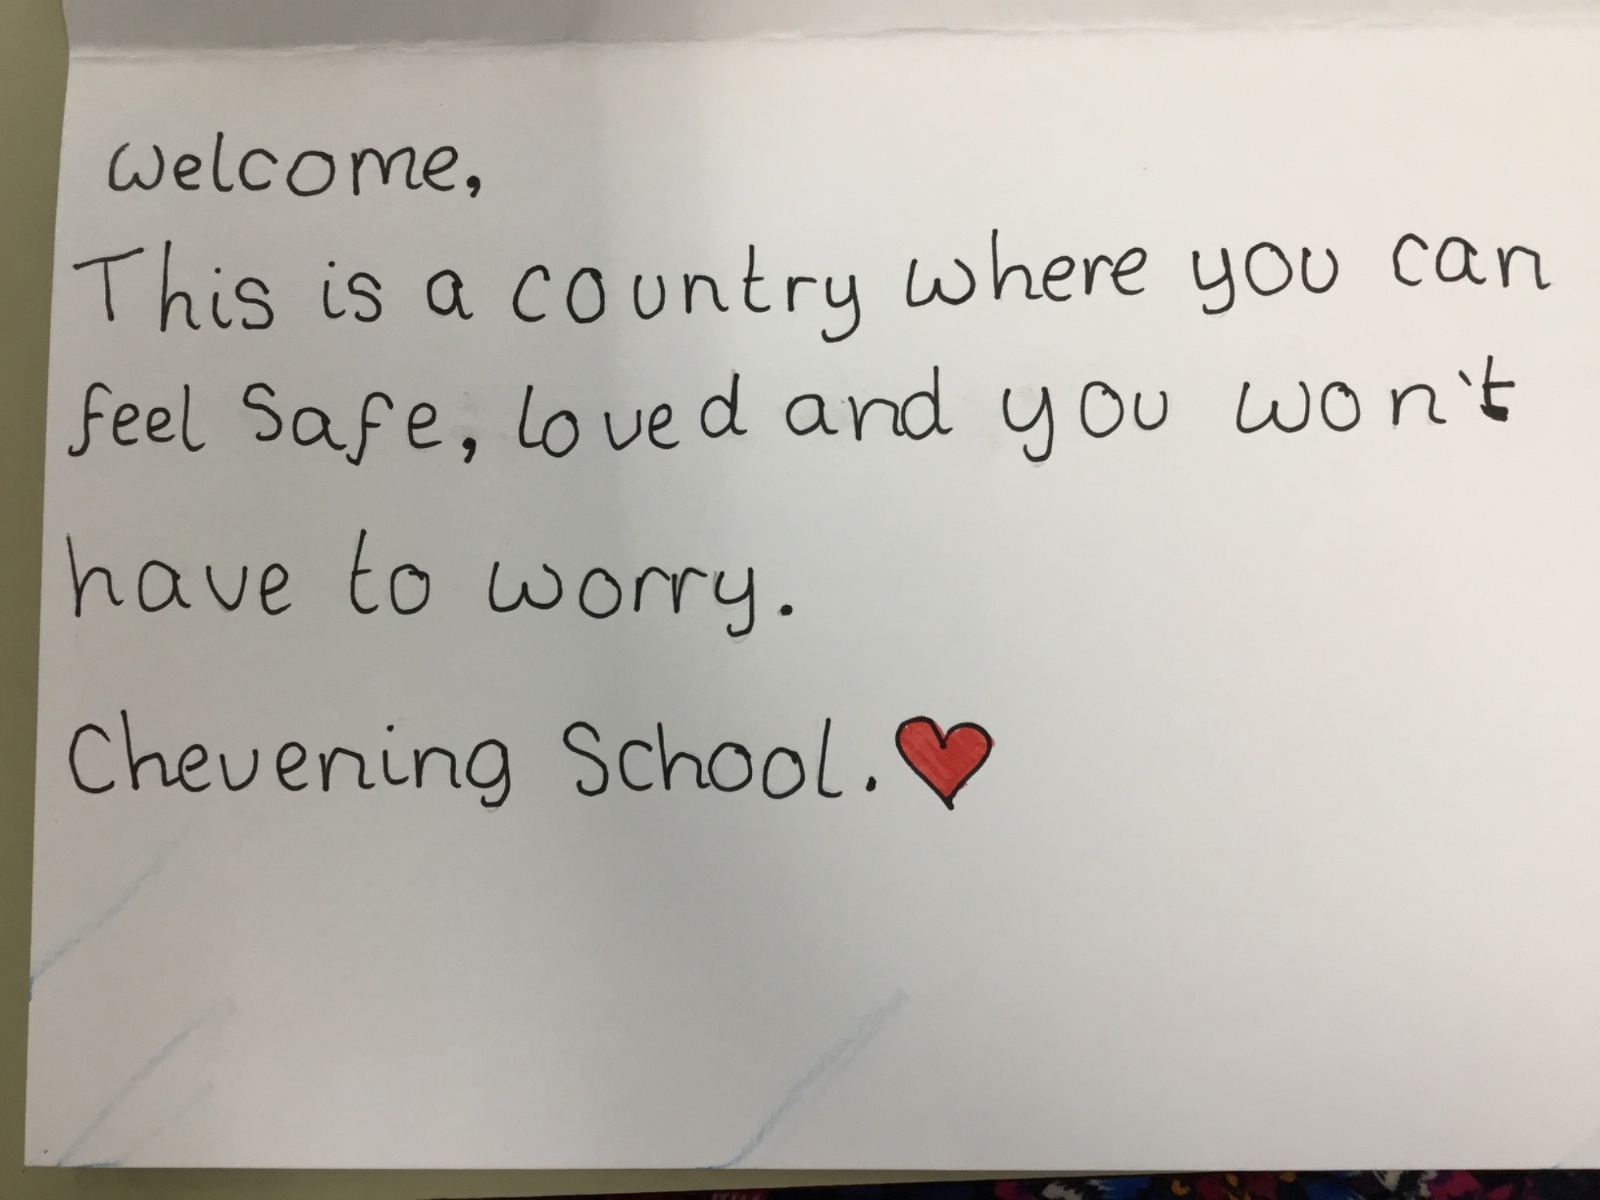 Welcome,
This is a country where you can
feel Safe, loved and you won't
have to worry.
Chevening School.